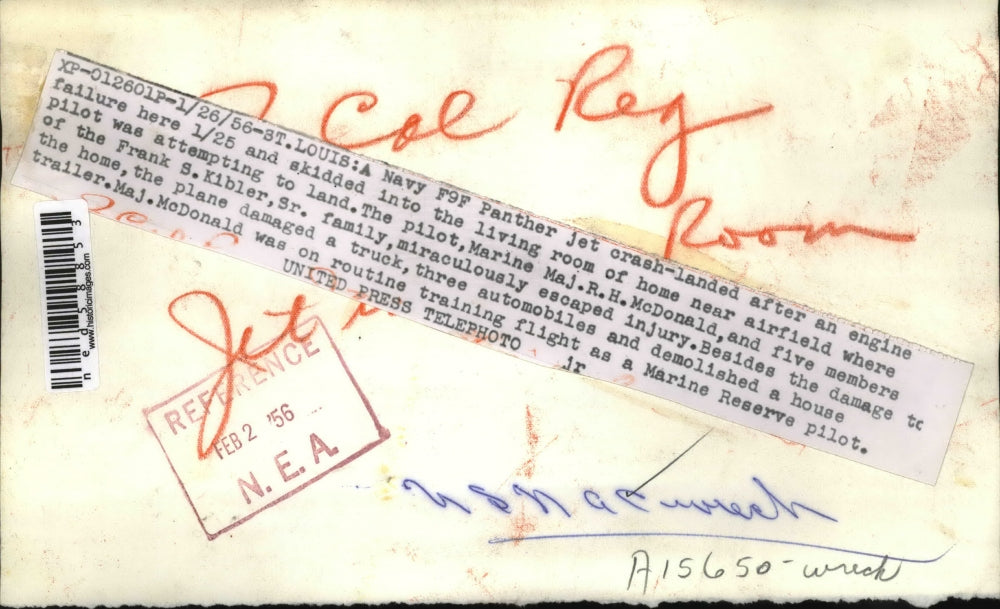 2 Col Reg
Room
XP-012601P-1/26/56-ST.LOUIS:A Navy F9F Panther jet crash-landed after an engine
failure here 1/25 and skidded into the living room of home near airfield where
pilot was attempting to land.The pilot,Marine Maj.R.H.McDonald,and five members
of the Frank S.Kibler,Sr. family,miraculously escaped injury.Besides the damage to
the home,the plane damaged a truck,three automobiles and demolished a house
trailer.Maj.McDonald was on routine training flight as a Marine Reserve pilot.
UNITED PRESS TELEPHOTO jr
ned58853
www.historicimages.com
Jet
REFERENCE
FEB 2 '56
N.E.A.
USN ac-wreck
A15650-wreck